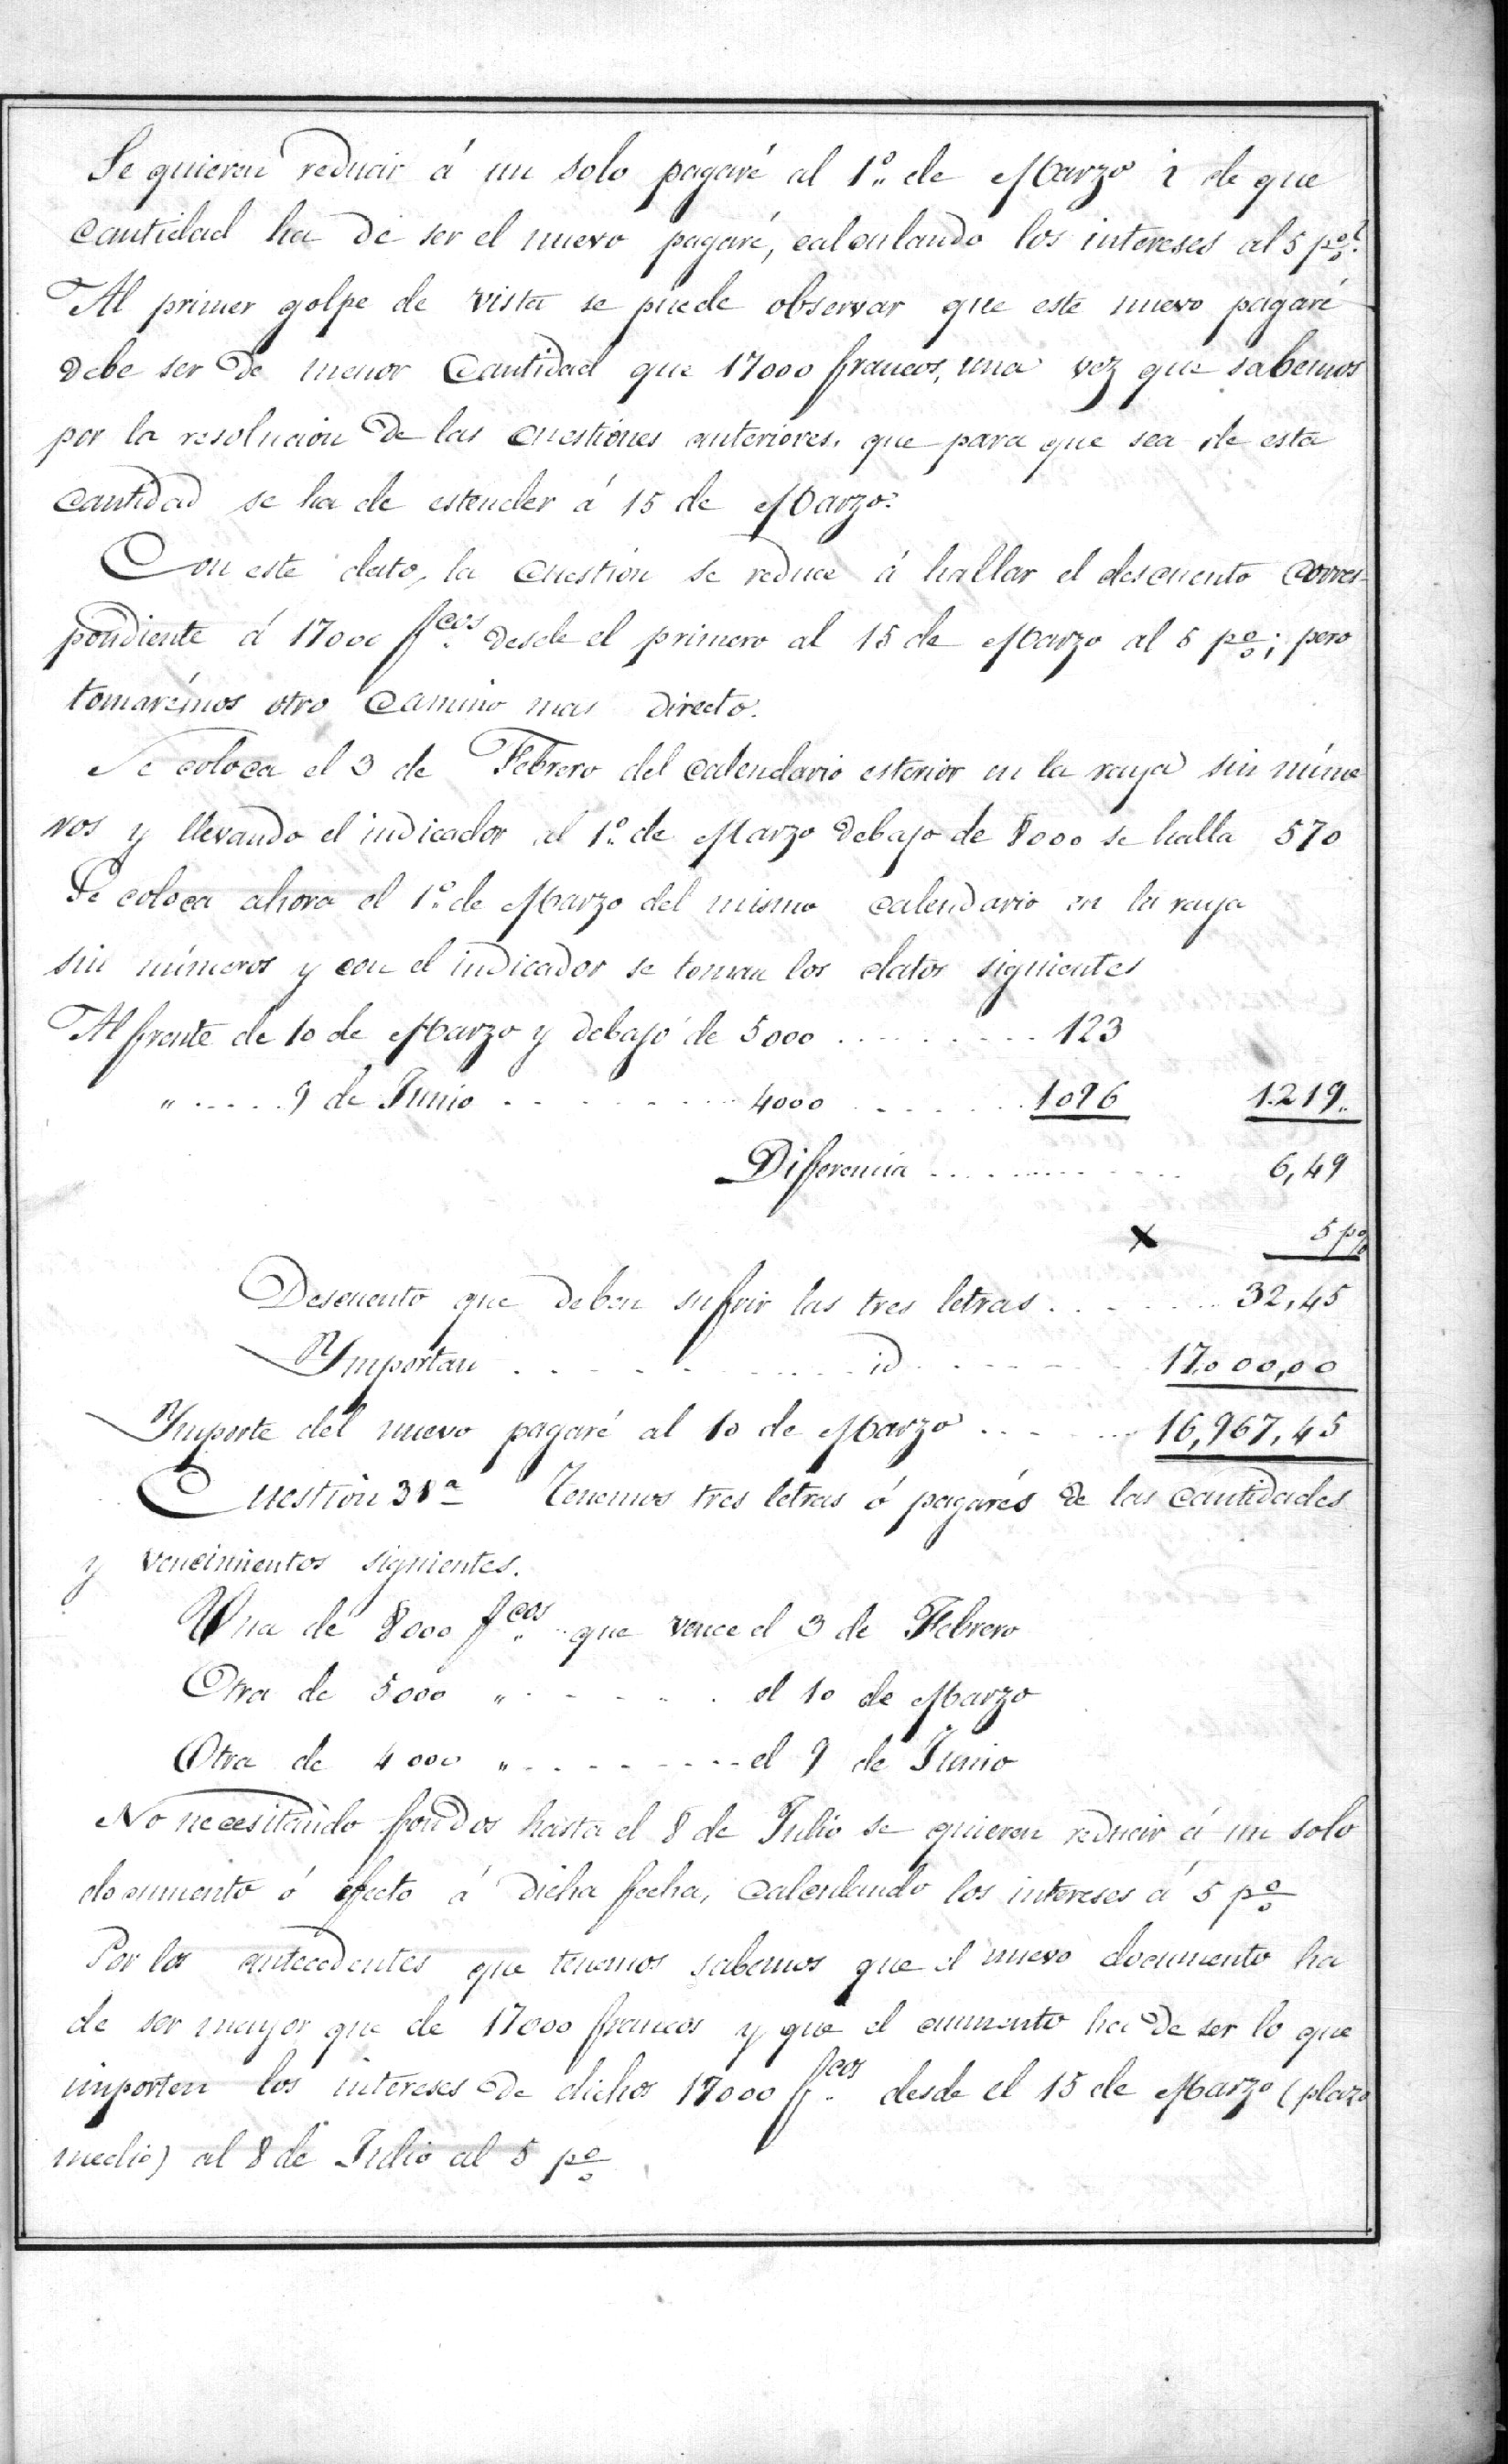 Se quieren reducir á un solo pagaré al 1º de Marzo ¿ de que
cantidad ha de ser el nuevo pagaré, calculando los intereses al 5 pº/o?
Al primer golpe de vista se puede observar que este nuevo pagaré
debe ser de menor cantidad que 17000 francos, una vez que sabemos
por la resolución de las cuestiones anteriores, que para que sea de esta
cantidad se ha de estender á 15 de Marzo.
Con este dato, la cuestión se reduce á hallar el descuento corres-
pondiente á 17000 fcos desde el primero al 15 de Marzo al 5 pº/o; pero
tomarémos otro camino mas directo.
Se coloca el 3 de Febrero del calendario esterior en la raya sin núme
ros y llevando el indicador al 1º de Marzo debajo de 8000 se halla 570
Se coloca ahora el 1º de Marzo del mismo calendario en la raya
sin números y con el indicador se toman los datos siguientes
Al frente de 10 de Marzo y debajo de 5000 ......... 123
" ..... 9 de Junio ......... 4000 ....... 1096 1.219"
Diferencia ............ 6,49
× 5 pº/o
Descuento que deben sufrir las tres letras ....... 32,45
Ymportan ......... id ....... 17.000,00
Ymporte del nuevo pagaré al 10 de Marzo ...... 16,967,45
Cuestión 38ª Tenemos tres letras ó pagarés de las cantidades
y vencimientos siguientes.
Una de 8000 fcos que vence el 3 de Febrero
Otra de 5000 " ...... el 10 de Marzo
Otra de 4000 " ........ el 9 de Junio
No necesitando fondos hasta el 8 de Julio se quieren reducir á un solo
documento ó efecto á dicha fecha, calculando los intereses á 5 pº/o
Por los antecedentes que tenemos sabemos que el nuevo documento ha
de ser mayor que de 17000 francos y que el aumento ha de ser lo que
importen los intereses de dichos 17000 fcos desde el 15 de Marzo (plazo
medio) al 8 de Julio al 5 pº/o